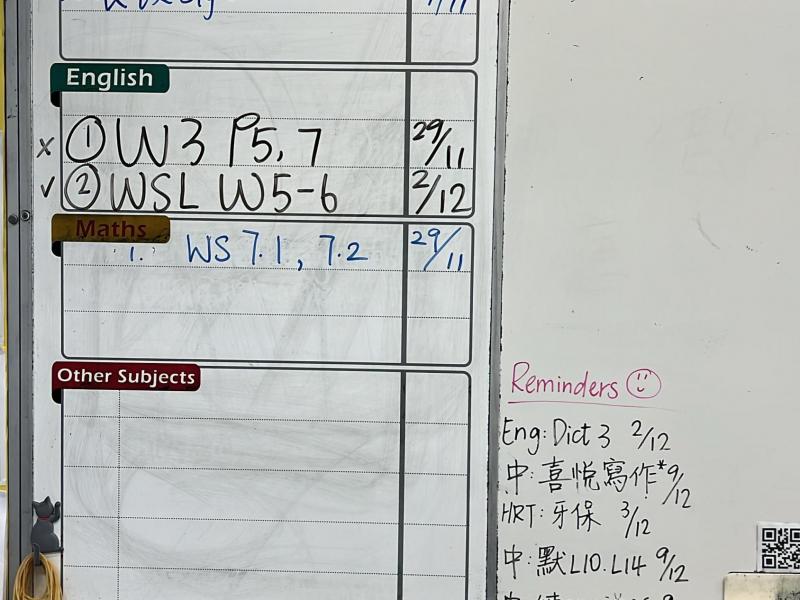 English
x ① W3 P5, 7 29/11
✓ ② WSL W5-6 2/12
Maths
1. WS 7.1, 7.2 29/11
Other Subjects
Reminders ☺
Eng: Dict 3 2/12
中: 喜悅寫作* 9/12
HRT: 牙保 3/12
中: 默L10. L14 9/12